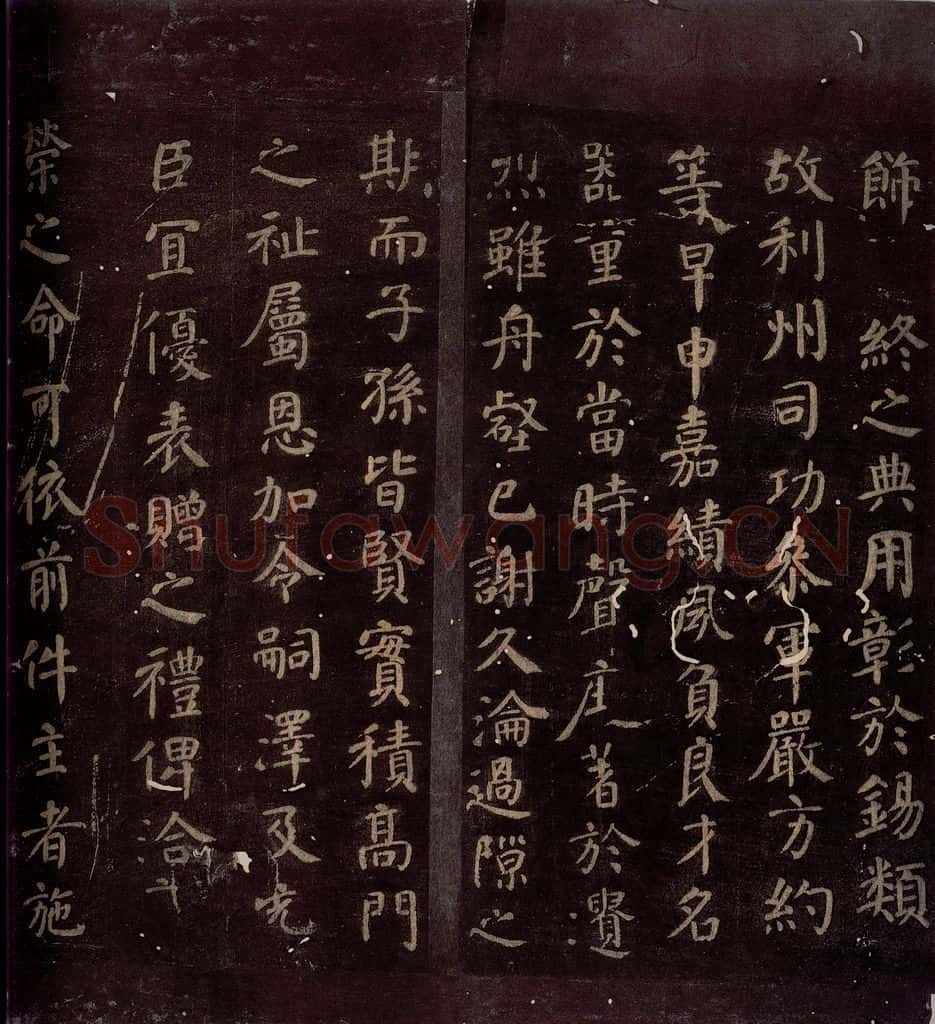 飾終之典用彰於錫類
故利州司功叅軍嚴方約
等早申嘉績夙負良才名
器重於當時聲著於遺
烈雖舟壑已謝久淪過隙之
期而子孫皆賢實積高門
之祉屬恩加令嗣澤及先
臣宜優表贈之禮俾洽
榮之命可依前件主者施
Shufawang.CN